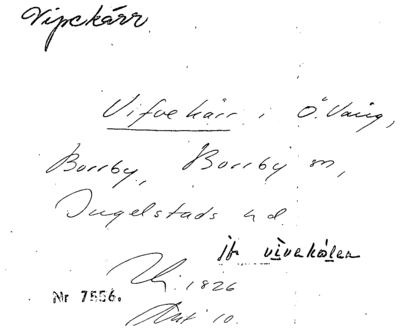 Vipekärr
Vifvekärr i Ö. Vång,
Borrby, Borrby sn,
Ingelstads hd.
jfr vivekålen
1826
Nr 7556.
Akt 10.